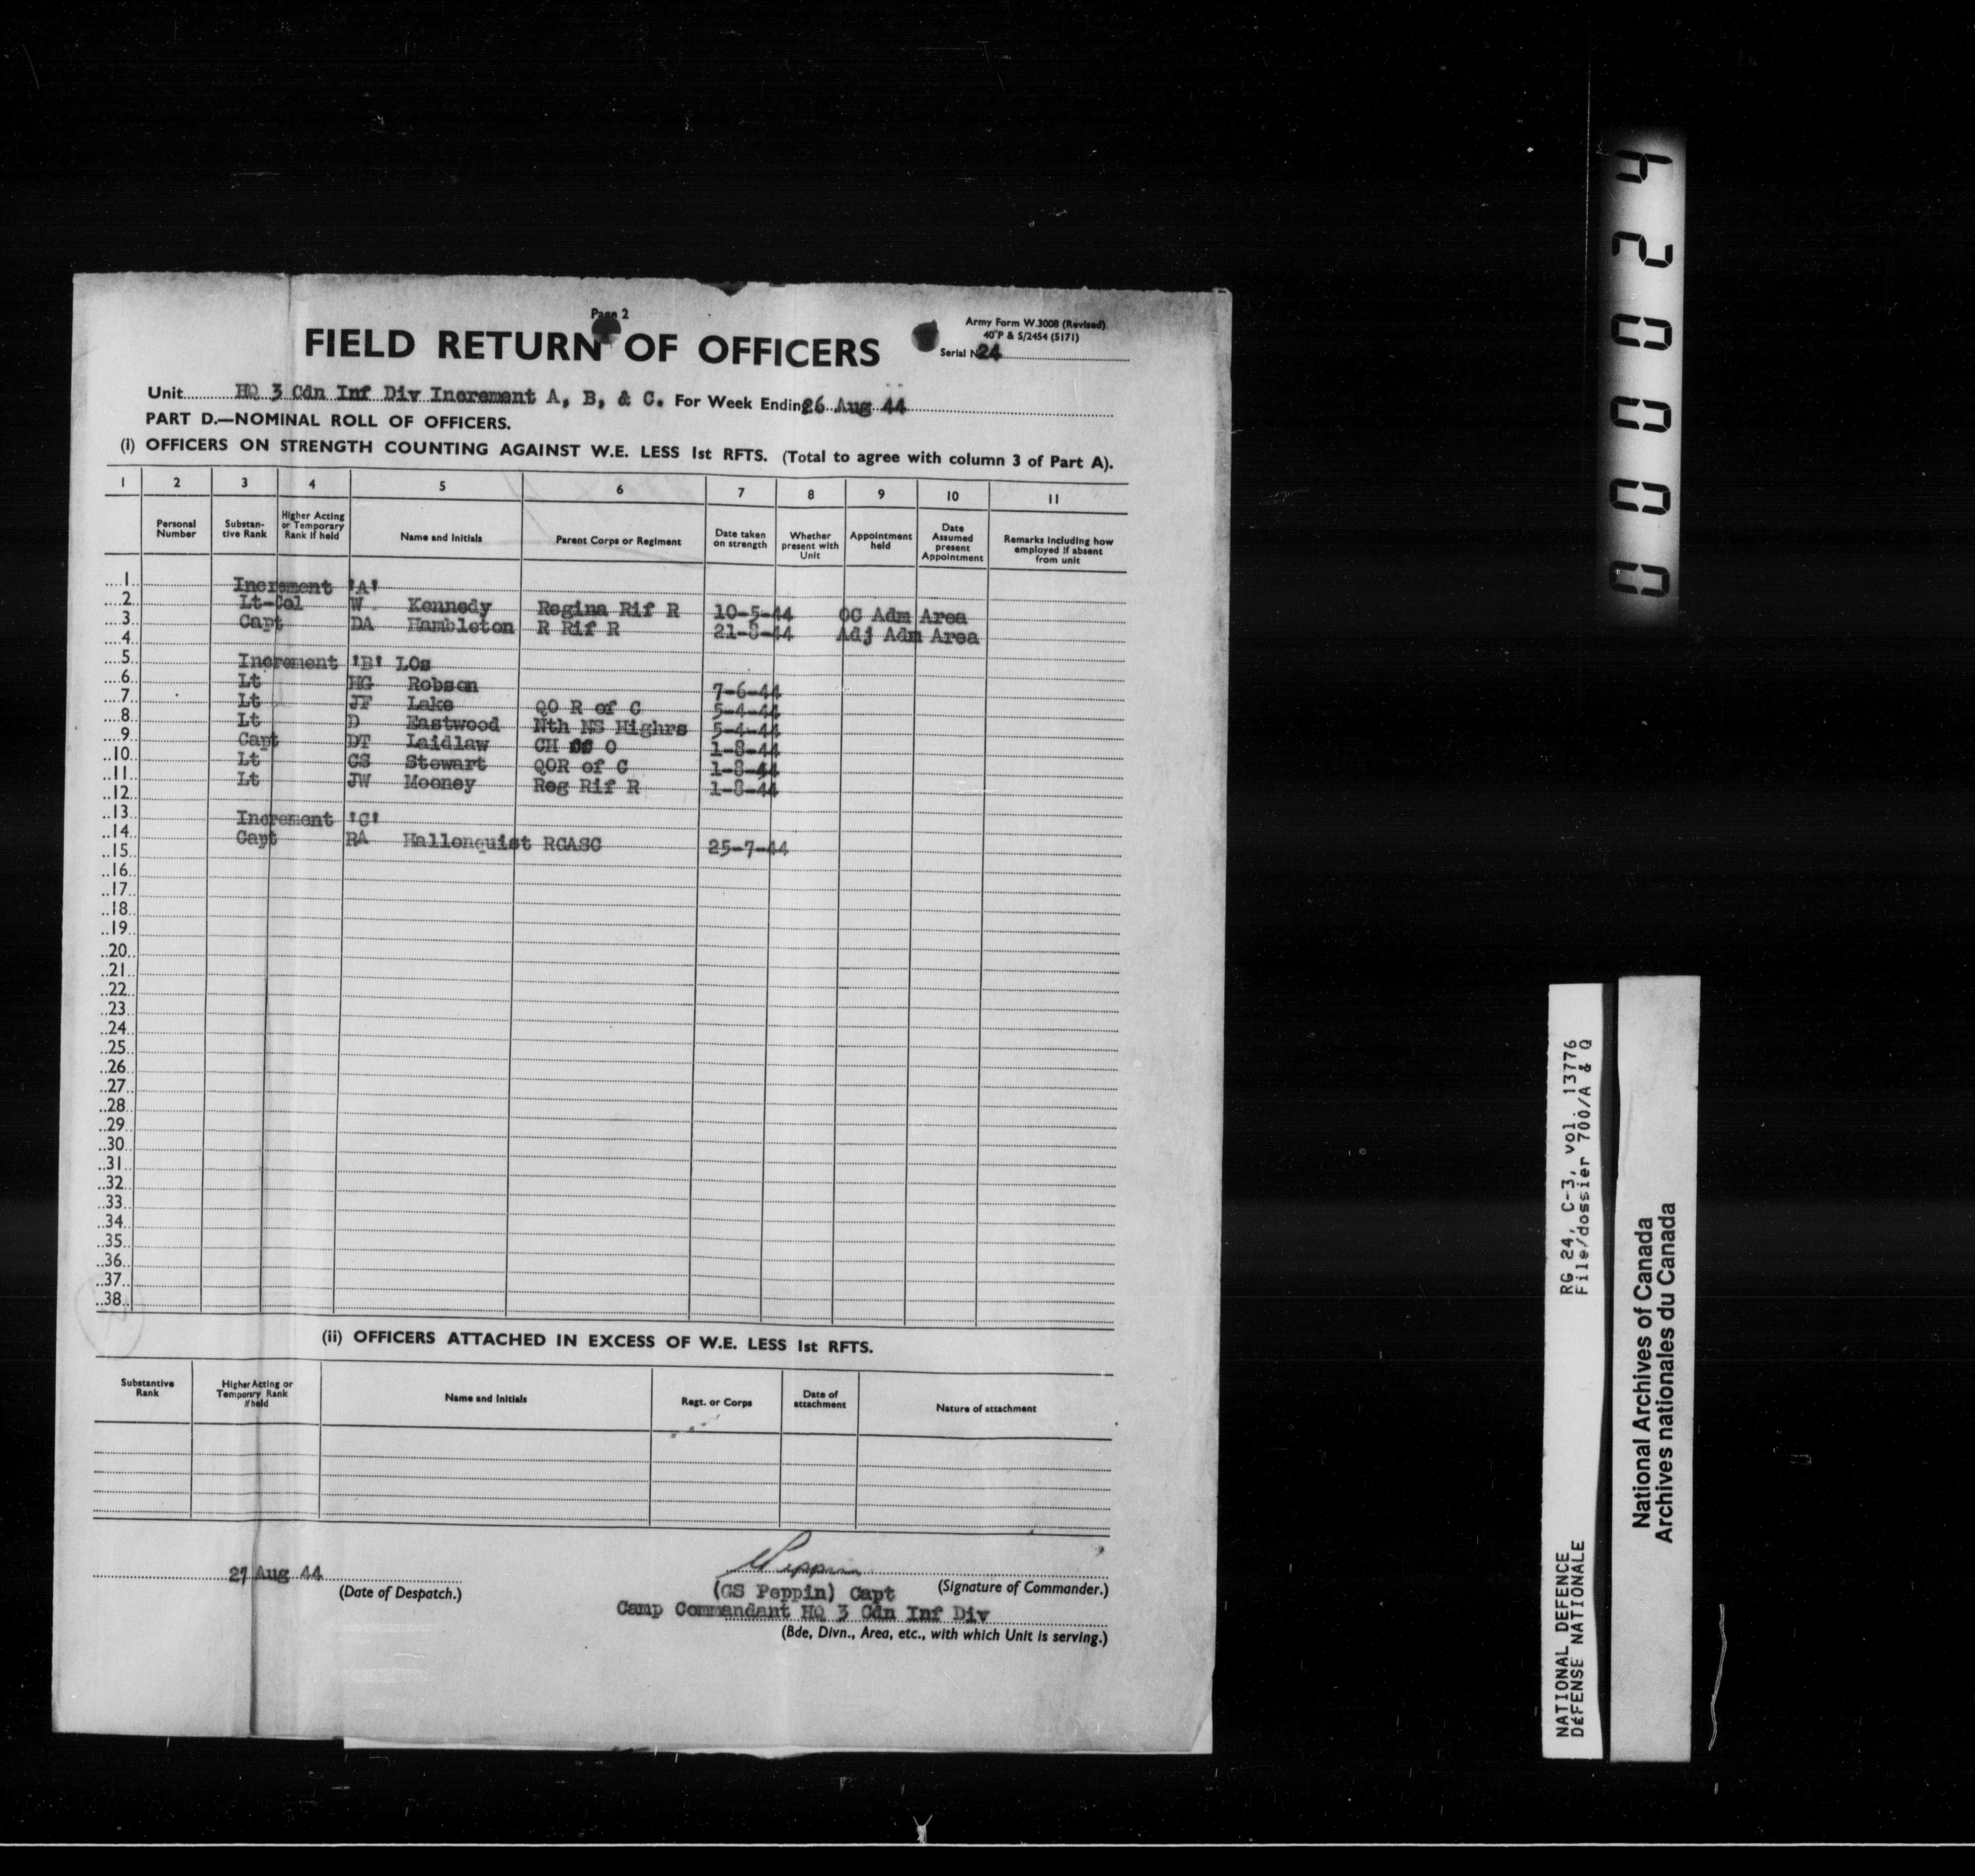 Page 2
FIELD RETURN OF OFFICERS
Army Form W.3008 (Revised)
40 P & S/2454 (5171)
Serial No 24
Unit HQ 3 Cdn Inf Div Increment A, B, & C. For Week Ending 26 Aug 44
PART D.—NOMINAL ROLL OF OFFICERS.
(i) OFFICERS ON STRENGTH COUNTING AGAINST W.E. LESS 1st RFTS. (Total to agree with column 3 of Part A).
1 2 3 4 5 6 7 8 9 10 11
Personal Number Substan-tive Rank Higher Acting or Temporary Rank if held Name and Initials Parent Corps or Regiment Date taken on strength Whether present with Unit Appointment held Date Assumed present Appointment Remarks including how employed if absent from unit
1 Increment 'A'
2 Lt-Col W Kennedy Regina Rif R 10-5-44 OC Adm Area
3 Capt DA Hambleton R Rif R 21-8-44 Adj Adm Area
4
5 Increment 'B' LOs
6 Lt HG Robson 7-6-44
7 Lt JF Lake QO R of C 5-4-44
8 Lt D Eastwood Nth NS Highrs 5-4-44
9 Capt DT Laidlaw CH of O 1-8-44
10 Lt GS Stewart QOR of C 1-8-44
11 Lt JW Mooney Reg Rif R 1-8-44
12
13 Increment 'C'
14 Capt RA Hallonquist RCASC 25-7-44
15
16
17
18
19
20
21
22
23
24
25
26
27
28
29
30
31
32
33
34
35
36
37
38
(ii) OFFICERS ATTACHED IN EXCESS OF W.E. LESS 1st RFTS.
Substantive Rank Higher Acting or Temporary Rank if held Name and Initials Regt. or Corps Date of attachment Nature of attachment
27 Aug 44
(Date of Despatch.)
Peppin
(GS Peppin) Capt (Signature of Commander.)
Camp Commandant HQ 3 Cdn Inf Div
(Bde, Divn., Area, etc., with which Unit is serving.)
000024
RG 24, C-3, vol. 13776
File/dossier 700/A & Q
NATIONAL DEFENCE
DÉFENSE NATIONALE
National Archives of Canada
Archives nationales du Canada